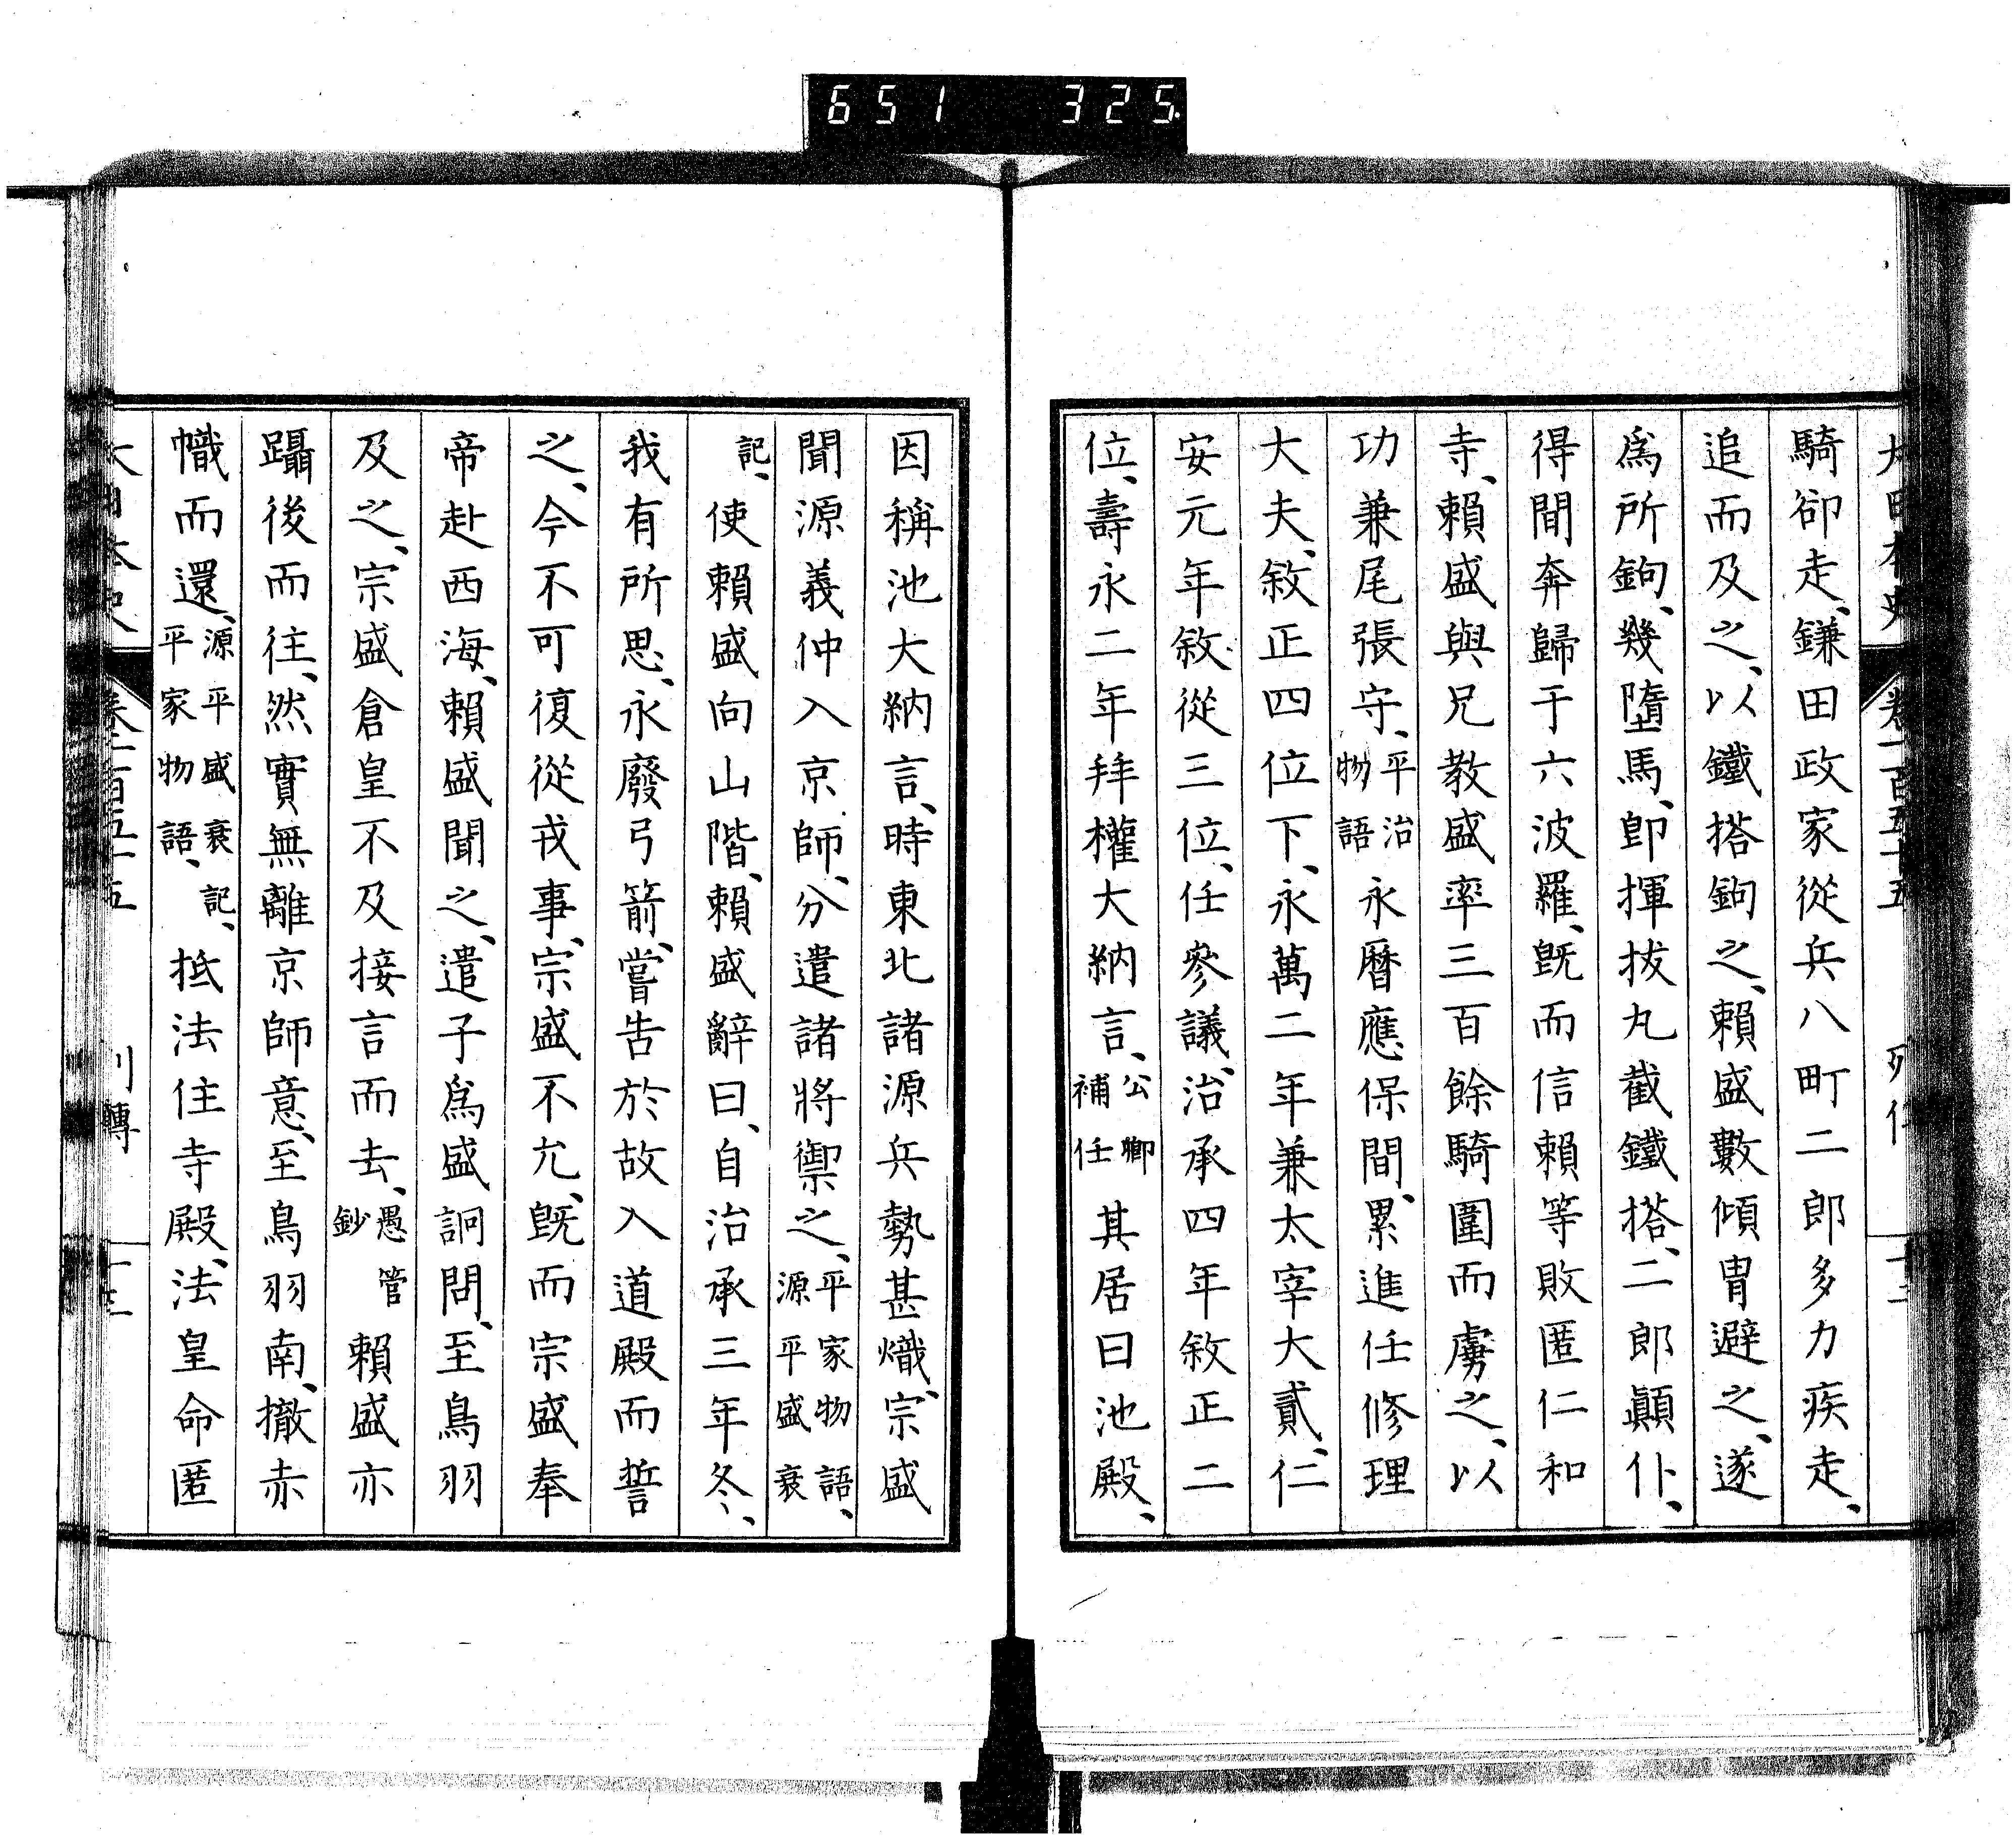 651 325
大日本史 卷一百五十五 列傳 十二
騎卻走、鎌田政家從兵八町二郎多力疾走、
追而及之、以鐵搭鉤之、賴盛數傾冑避之、遂
爲所鉤、幾墮馬、卽揮拔丸截鐵搭、二郎顚仆、
得間奔歸于六波羅、旣而信賴等敗匿仁和
寺、賴盛與兄教盛率三百餘騎圍而虜之、以
功兼尾張守、平治物語永曆應保間、累進任修理
大夫、敘正四位下、永萬二年兼太宰大貳、仁
安元年敘從三位、任參議、治承四年敘正二
位、壽永二年拜權大納言、公卿補任其居曰池殿、
因稱池大納言、時東北諸源兵勢甚熾、宗盛
聞源義仲入京師、分遣諸將禦之、平家物語、源平盛衰
記、使賴盛向山階、賴盛辭曰、自治承三年冬、
我有所思、永廢弓箭、嘗告於故入道殿而誓
之、今不可復從戎事、宗盛不允、旣而宗盛奉
帝赴西海、賴盛聞之、遣子爲盛詗問、至鳥羽
及之、宗盛倉皇不及接言而去、愚管鈔賴盛亦
躡後而往、然實無離京師意、至鳥羽南、撤赤
幟而還、源平盛衰記、平家物語、抵法住寺殿、法皇命匿
大日本史 卷一百五十五 列傳 十三